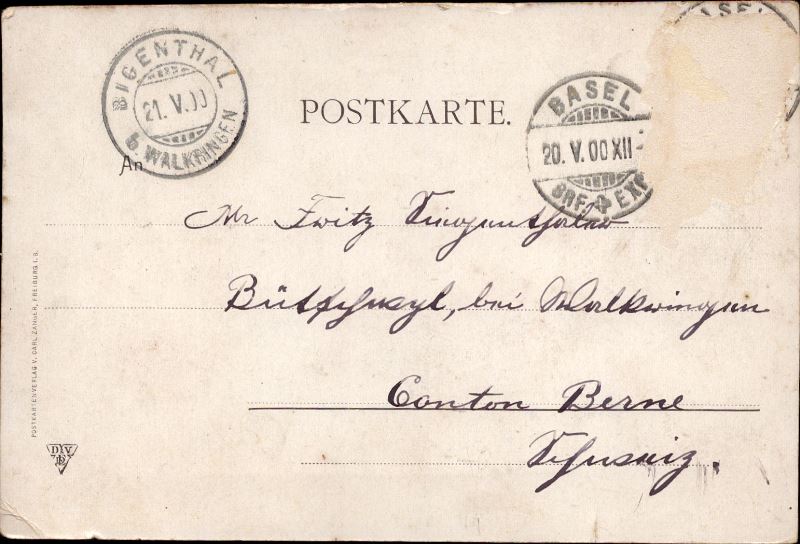 BIGENTHAL
21. V. 00
b. WALKRINGEN
POSTKARTE.
BASEL
20. V. 00 XII-
BRF. EXP
BASEL
An
Mr Fritz Siegenthaler
Bütschwyl, bei Walkringen
Canton Berne
Schweiz.
POSTKARTENVERLAG V. CARL ZANGER, FREIBURG I. B.
D V